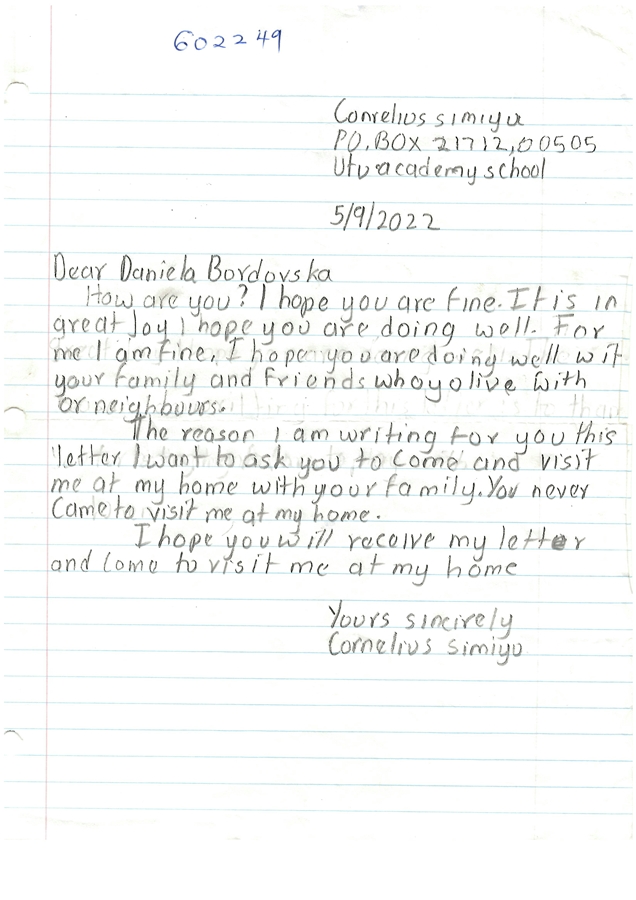 602249
Cornelius simiyu
P.O.BOX 21712,00505
Utu academy school
5/9/2022
Dear Daniela Bordovska
How are you? I hope you are fine. It is in
great Joy I hope you are doing well. For
me I am fine. I hope you are doing well wit
your family and friends who yo live with
or neighbours.
The reason I am writing for you this
letter I want to ask you to come and visit
me at my home with your family. You never
Came to visit me at my home.
I hope you will receive my letter
and come to visit me at my home
Yours sincirely
Cornelius simiyu